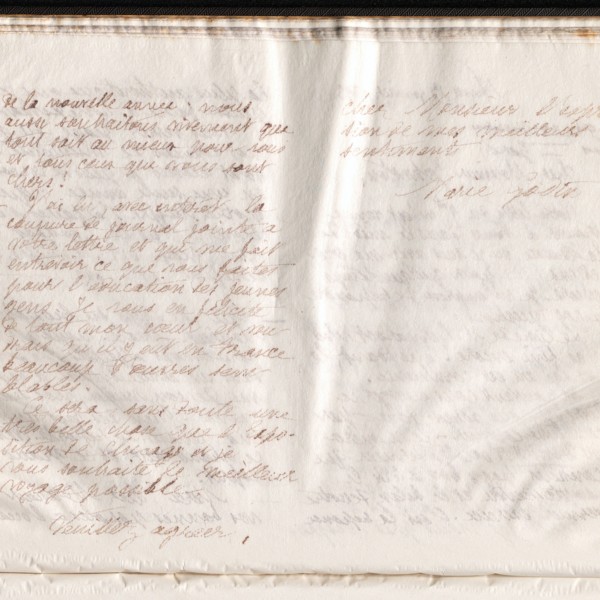 de la nouvelle année. nous
aussi souhaitons vivement que
tout soit au mieux pour vous
et tous ceux que vous sont
chers!
J'ai lu avec intérêt la
coupure de journal jointe à
votre lettre et qui me fait
entrevoir ce que vous faites
pour l'éducation des jeunes
gens. Je vous en félicite
de tout mon coeur et
qu'il y ait en France
beaucoup d'oeuvres sem-
blables.
Ce sera sans doute une
très belle chose que l'expo-
sition de Chicago et je
vous souhaite le meilleur
voyage possible.
Veuillez agréer,
cher Monsieur l'expres
sion de mes meilleurs
sentiments
Marie